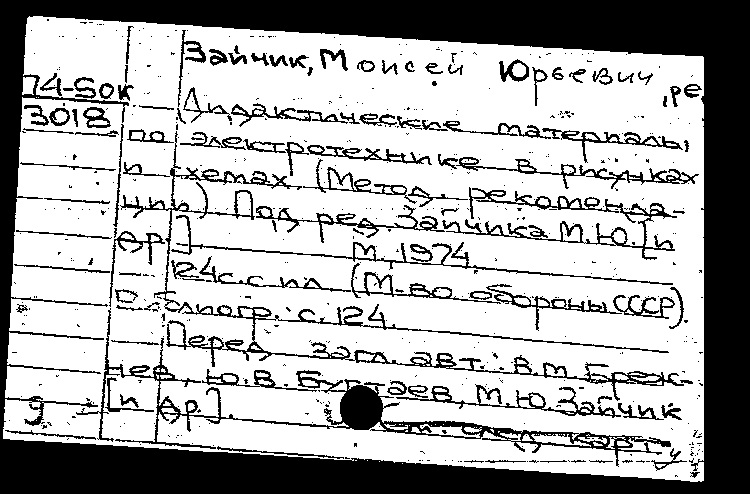 Зайчик, Моисей Юрьевич, ре
74-50к
3018
Дидактические материалы
по электротехнике в рисунках
и схемах. (Метод. рекоменда-
ции). Под ред. Зайчика М.Ю. [и
др.]. М., 1974.
124с. с ил. (М-во обороны СССР).
Библиогр.: с. 124.
Перед загл. авт.: В.М. Бреж-
нев, Ю.В. Буртаев, М.Ю. Зайчик
[и др.].
См. след. карт.
9